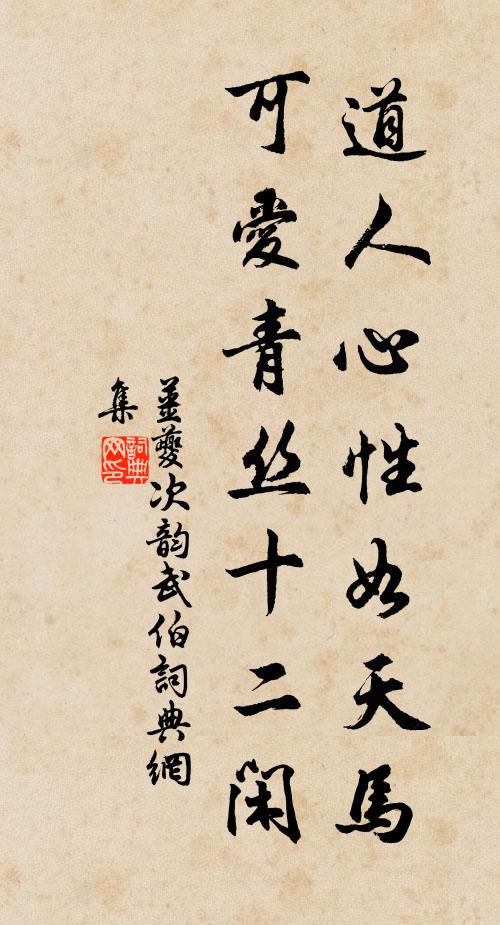 道人心性如天馬
可愛青丝十二闲
姜夔次韵武伯詞典網
集
詞典
网印